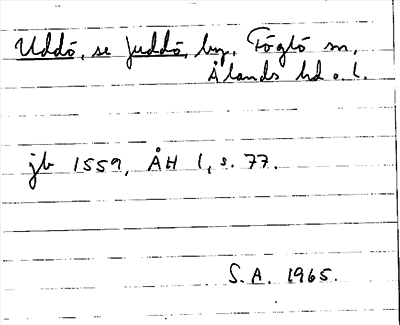 Uddö, se Juddö, by, Föglö sn,
Ålands hd o. l.
jb 1559, ÅH 1, s. 77.
S.A. 1965.